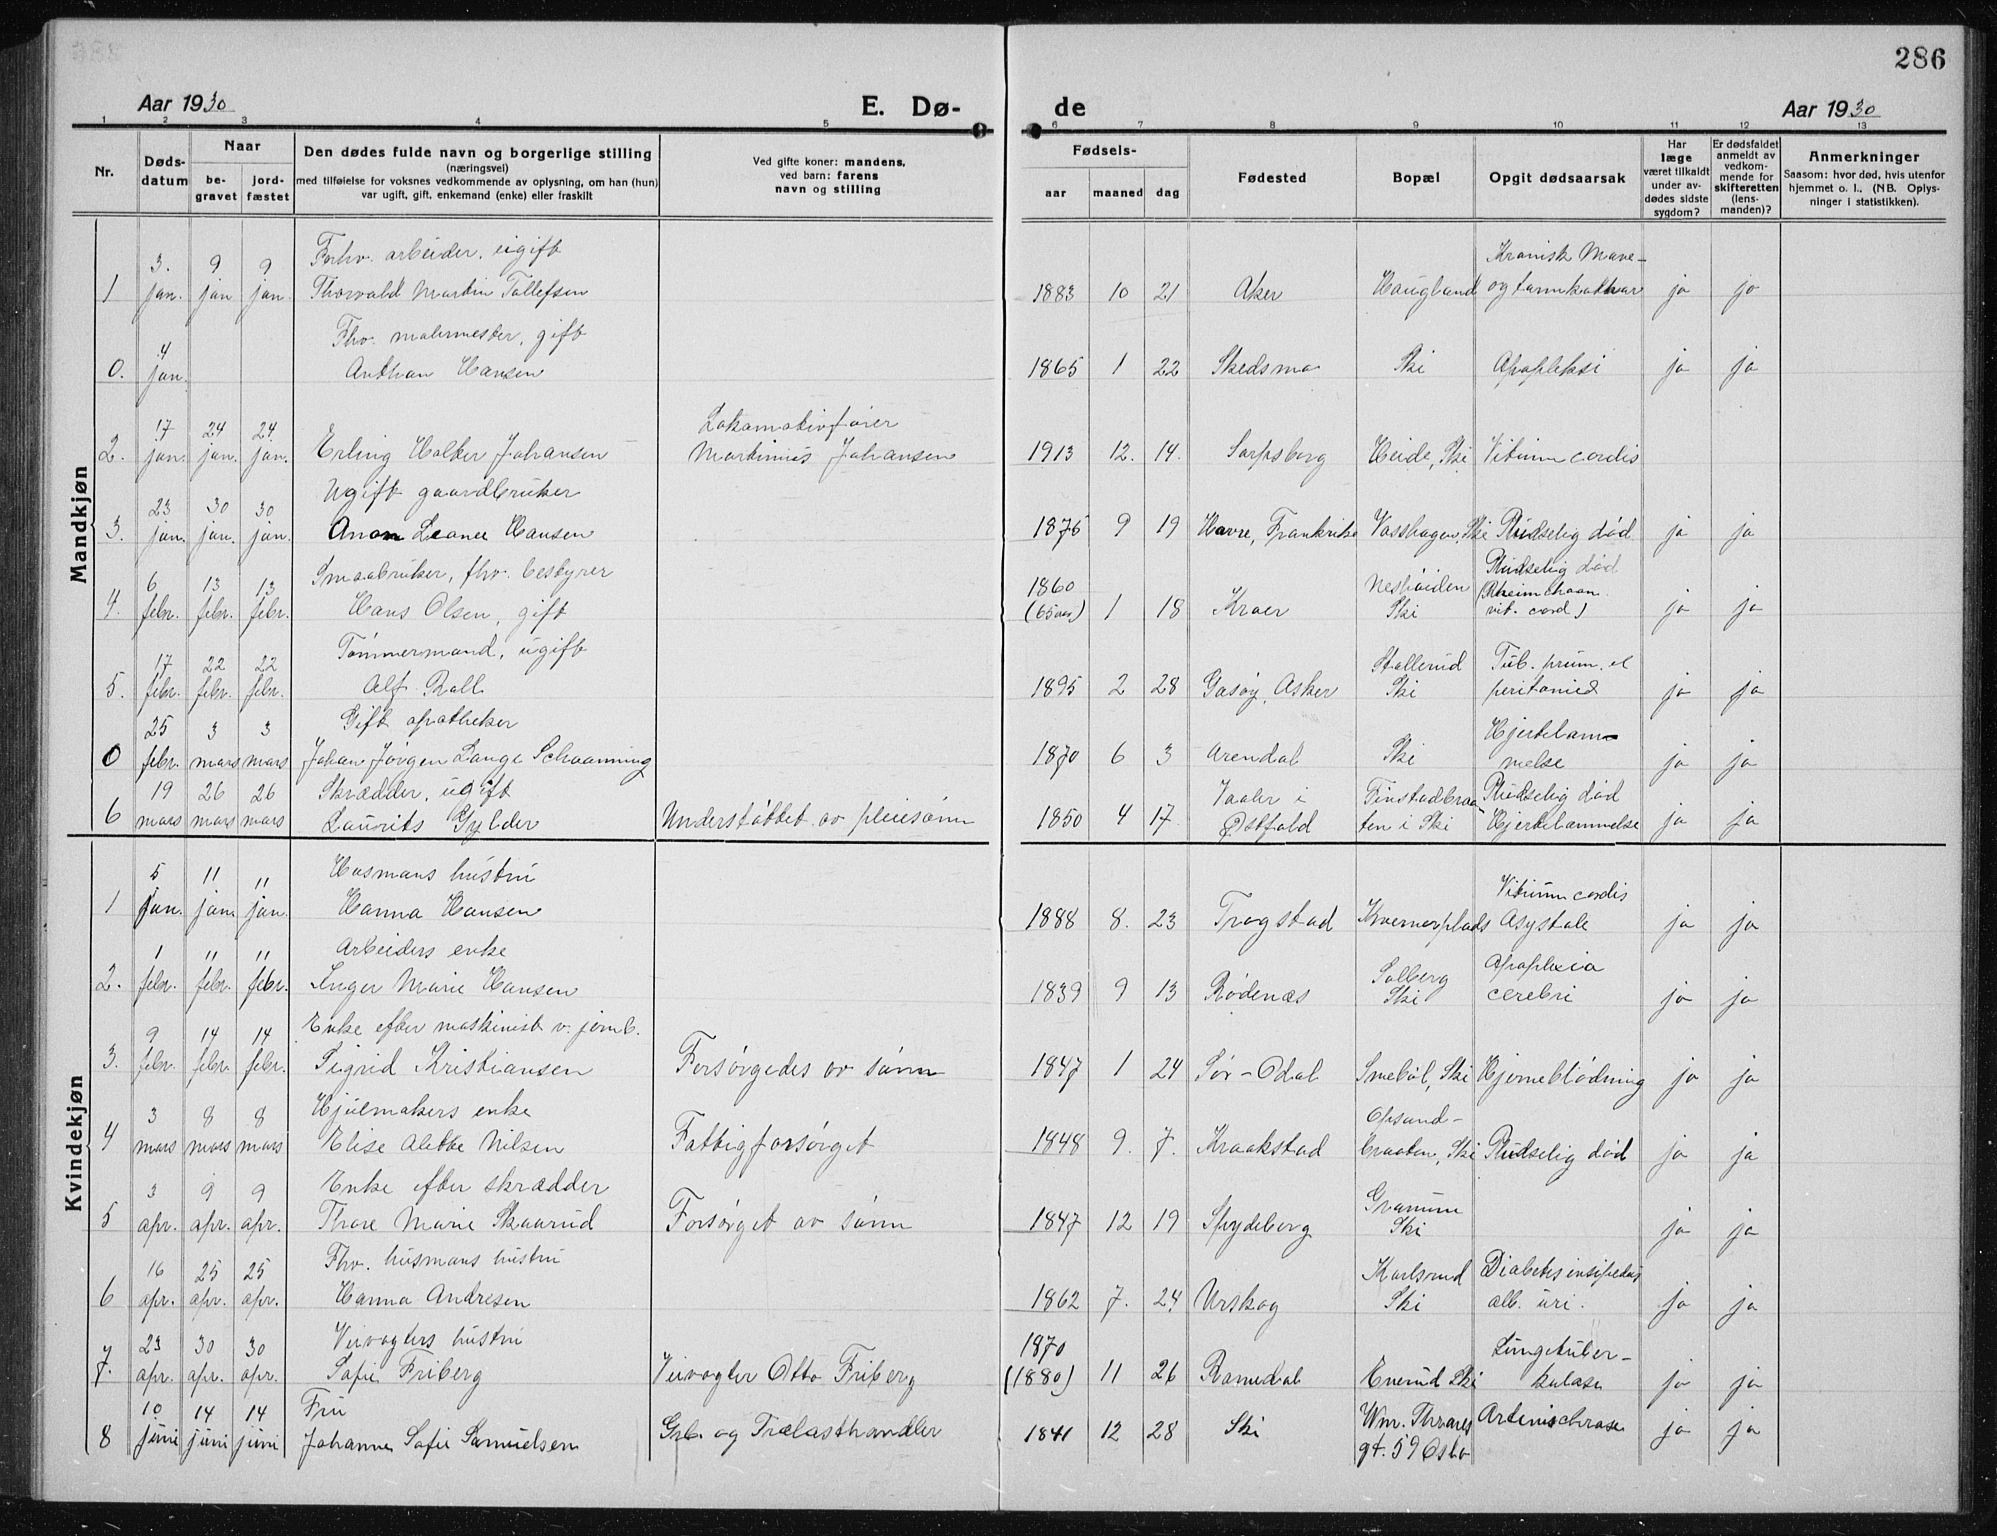 286
Aar 1930
E. Dø-
de
Aar 1930
1 2 3 4 5 6 7 8 9 10 11 12 13
Nr.
Døds-
datum
Naar
be-
gravet
jord-
fæstet
Den dødes fulde navn og borgerlige stilling
(næringsvei)
med tilføielse for voksnes vedkommende av oplysning, om han (hun)
var ugift, gift, enkemand (enke) eller fraskilt
Ved gifte koner: mandens,
ved barn: farens
navn og stilling
Fødsels-
aar maaned dag
Fødested
Bopæl
Opgit dødsaarsak
Har
læge
været tilkaldt
under av-
dødes sidste
sygdom?
Er dødsfaldet
anmeldt av
vedkom-
mende for
skifteretten
(lens-
manden)?
Anmerkninger
Saasom: hvor død, hvis utenfor
hjemmet o. l., (NB. Oplys-
ninger i statistikken).
Mandkjøn
3. 9 9 Forhv. arbeider, ugift Kronisk Mave-
1 jan. jan jan. Thorvald Martin Tollefsen 1883 10 21 Aker Haugland og tarmkatharr ja ja
4 Fhv. malermester, gift
0. jan. Anthon Hansen 1865 1 22 Skedsmo Ski Apopleksi ja ja
17 24 24 Lokomotivfører
2. jan. jan. jan. Erling Holker Johansen Martinius Johansen 1913 12. 14. Sarpsborg Heide, Ski Vitium cordis
23 30 30 Ugift gaardbruker
3. jan. jan. jan. Anon Leonce Hansen 1876 9 19 Havre, Frankrike Vasshagen, Ski Pludselig død ja ja
6 13 13 Smaabruker, fhv. bestyrer 1860 Neshøiden Pludselig død
4. febr. febr. febr. Hans Olsen, gift (65 aar) 1 18 Kroer Ski vit. cord) ja ja
17 22 22 Tømmermand, ugift Stallerud Tub. prum. et
5. febr. febr. febr. Alf Roll 1895 2 28 Gasøy, Asker Ski peritonied ja ja
25 3 3 Gift apotheker Hjertelam-
0 febr. mars mars Johan Jørgen Lange Schaanning 1870 6 3 Arendal Ski melse ja ja
19 26 26 Skrædder, ugift Vaaler i Finstadbraa- Pludselig død
6 mars mars mars Laurits Gylder Understøttet av pleiesønn 1850 4 17. Østfold ten i Ski Hjertelammelse ja ja
Kvindekjøn
5 11 11 Husmans hustru Vitium cordis
1 jan. jan. jan. Hanna Hansen 1888 8. 23 Trøgstad Kvernerplads Asystole ja ja
1 11 11 Arbeiders enke Solberg Apoplexia
2. febr. febr. febr. Inger Marie Hansen 1839 9 13 Rødenæs Ski cerebri ja ja
9 14 14 Enke efter maskinist v. jernb.
3. febr. febr. febr. Sigrid Kristiansen Forsørgedes av sønn 1847 1 24 Sør-Odal Smebøl, Ski Hjerneblødning ja ja
3 8 8 Hjulmakers enke Opsand-
4 mars mars mars Elise Alette Nilsen Fattigforsørget 1848 9. 7. Kraakstad braaten, Ski Pludselig død ja ja
3 9 9 Enke efter skrædder Granum
5 apr. apr. apr. Thore Marie Skaarud Forsørget av sønn 1847 12 19 Spydeberg Ski ja ja
16 25 25 Fhv. husmans hustru Karlsrud Diabetes insipedus
6 apr. apr. apr. Hanna Andresen 1862 7. 24 Urskog Ski alb. uri. ja ja
23 30 30 Veivogters hustru 1870 Lungetuber-
7. apr. apr. apr. Sofie Friberg Veivogter Otto Friberg (1880) 11 26 Romedal Enerud Ski kulose ja ja
10 14 14 Fru Wm. Thranes
8 juni juni juni Johanne Sofie Samuelsen Grb. og Trælasthandler 1841 12 28 Ski gt. 59 Oslo ja ja